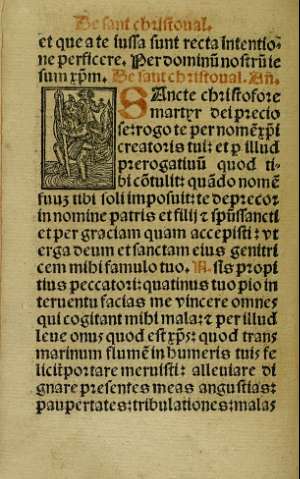 De sant christoual.
et que a te iussa sunt recta intentio-
ne perficere. Per dominū nostrū ie
sum xp̄m. De sant christoual. Añ.
SAncte christofore
martyr dei precio
se: rogo te per nomē xp̄i
creatoris tui: et ꝑ illud
prerogatiuū quod ti-
bi cōtulit: quādo nomē
suuʒ tibi soli imposuit: te deprecor
in nomine patris et filij ⁊ spūssancti
et per graciam quam accepisti: vt
erga deum et sanctam eius genitri
cem mihi famulo tuo. N. sis propi
tius peccatori: quatinus tuo pio in
teruentu facias me vincere omnes
qui cogitant mihi mala: ⁊ per illud
leue onus quod est xp̄s: quod trans
marinum flumē in humeris tuis fe
licit̄ portare meruisti: alleuiare di
gnare presentes meas angustias:
paupertates: tribulationes: malas